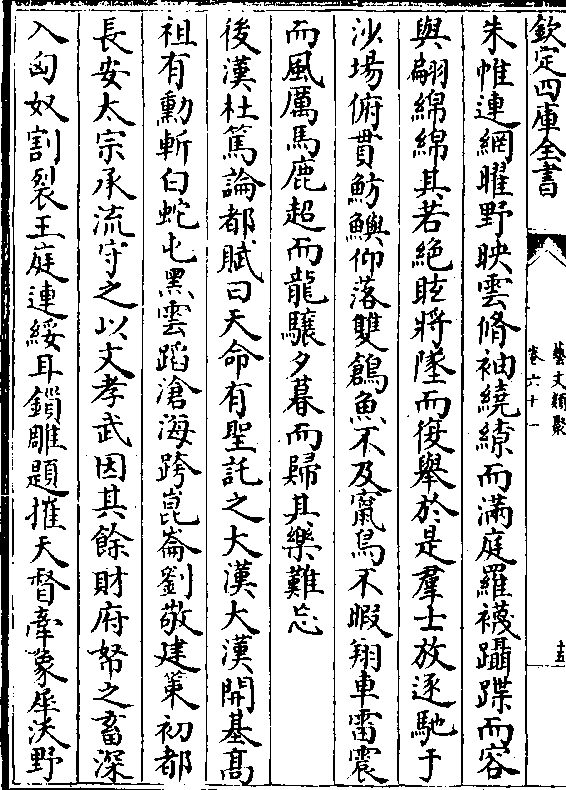 欽定四庫全書
藝文類聚
卷六十一
十五
朱帷連網曜野映雲脩袖繞繚而滿庭羅襪躡蹀而容
與翩綿綿其若絶眩將墜而復舉於是羣士放逐馳于
沙場俯貫魴鱮仰落雙鶬魚不及竄鳥不暇翔車雷震
而風厲馬鹿超而龍驤夕暮而歸其樂難忘
後漢杜篤論都賦曰天命有聖託之大漢大漢開基髙
祖有勳斬白蛇屯黑雲蹈滄海跨崑崙劉敬建䇿初都
長安太宗承流守之以文孝武因其餘財府帑之畜深
入匈奴割裂王庭連緌耳鎖雕題摧天督牽象犀沃野